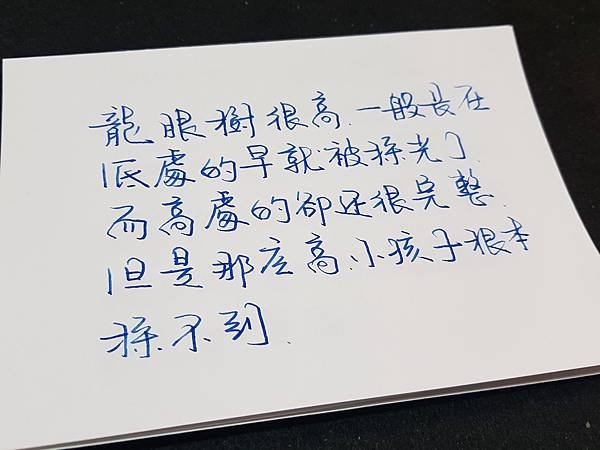 龍眼樹很高.一般長在
低處的早就被採光了.
而高處的卻还很完整.
但是那底高.小孩子根本
採不到.